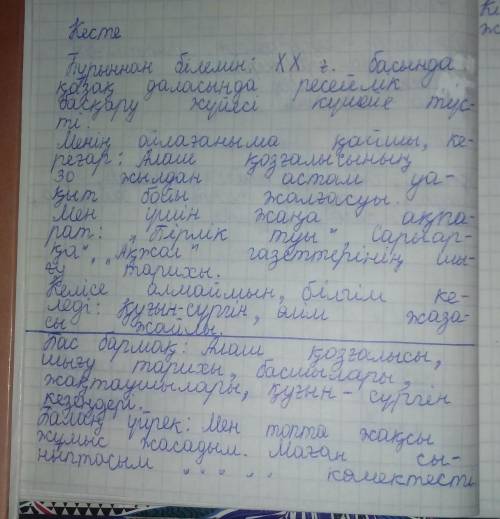 Кесте
Бұрыннан білемін: XX ғ. басында
қазақ даласында ресейлік
басқару жүйесі күшейе түс-
ті.
Менің ойлағаныма қайшы, ке-
реғар: Алаш қозғалысының
30 жылдан астам уа-
қыт бойы жалғасуы.
Мен үшін жаңа ақпа-
рат: "Бірлік туы", Сарыар-
қа", "Ақжол" газеттерінің шы-
ғу тарихы.
Келісе алмаймын, білгім ке-
леді: Қуғын-сүргін, өлім жаза-
сы жайлы.
Бас бармақ: Алаш қозғалысы,
шығу тарихы, басшылары,
жақтаушылары, қуғын - сүргін
кезеңдері.
Балаң үйрек: Мен топта жақсы
жұмыс жасадым. Маған сы-
ныптасым " " " " көмектесті